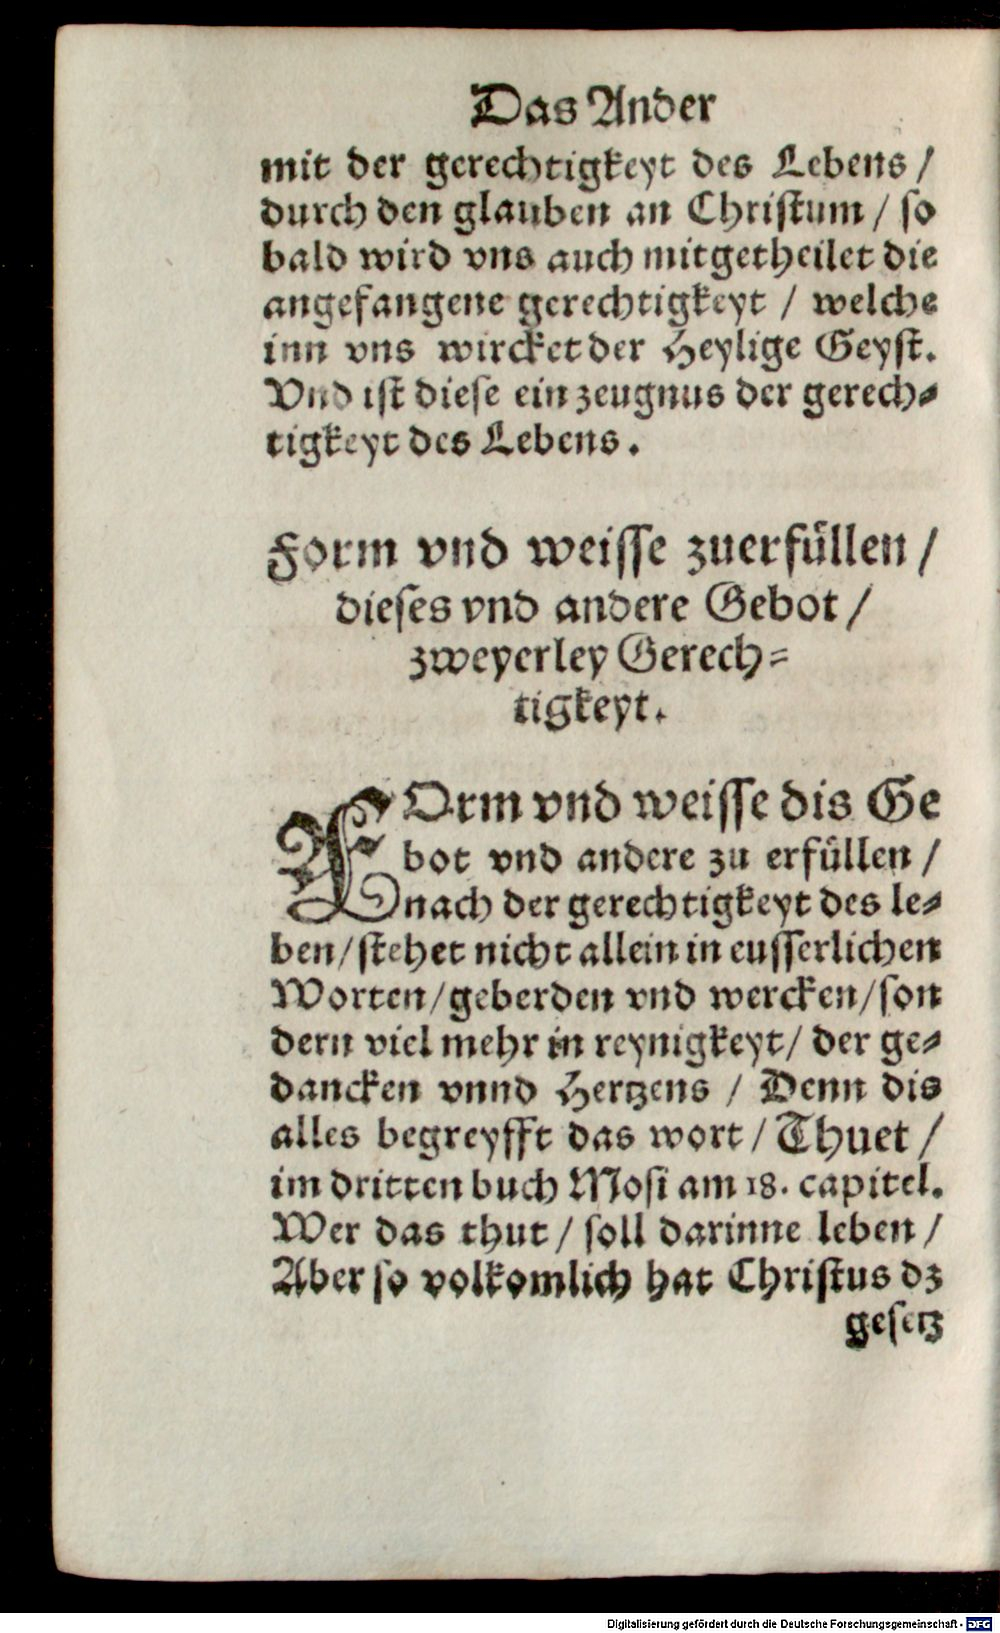 Das Ander
mit der gerechtigkeyt des Lebens /
durch den glauben an Christum / so
bald wird vns auch mitgetheilet die
angefangene gerechtigkeyt / welche
inn vns wircket der Heylige Geyst.
Vnd ist diese ein zeugnus der gerech-
tigkeyt des Lebens.
Form vnd weisse zuerfüllen /
dieses vnd andere Gebot /
zweyerley Gerech-
tigkeyt.
FOrm vnd weisse dis Ge
bot vnd andere zu erfüllen /
nach der gerechtigkeyt des le-
ben/ stehet nicht allein in eusserlichen
Worten/ geberden vnd wercken/ son
dern viel mehr in reynigkeyt/ der ge-
dancken vnnd Hertzens / Denn dis
alles begreyfft das wort / Thuet /
im dritten buch Mosi am 18. capitel.
Wer das thut / soll darinne leben /
Aber so volkomlich hat Christus dz
gesetz
Digitalisierung gefördert durch die Deutsche Forschungsgemeinschaft - DFG